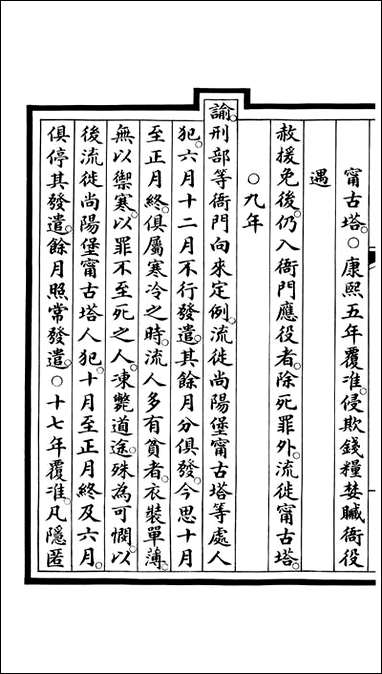 甯古塔。○康熙五年覆准。侵欺錢糧婪贓衙役
遇
赦援免後。仍入衙門應役者。除死罪外。流徙甯古塔。
○九年
諭。刑部等衙門向來定例。流徙尚陽堡甯古塔等處人
犯。六月十二月不行發遣。其餘月分俱發。今思十月
至正月終。俱屬寒冷之時。流人多有貧者。衣裝單薄。
無以禦寒。以罪不至死之人。凍斃道途。殊為可憫。以
後流徙尚陽堡甯古塔人犯。十月至正月終及六月。
俱停其發遣。餘月照常發遣。○十七年覆准。凡隱匿